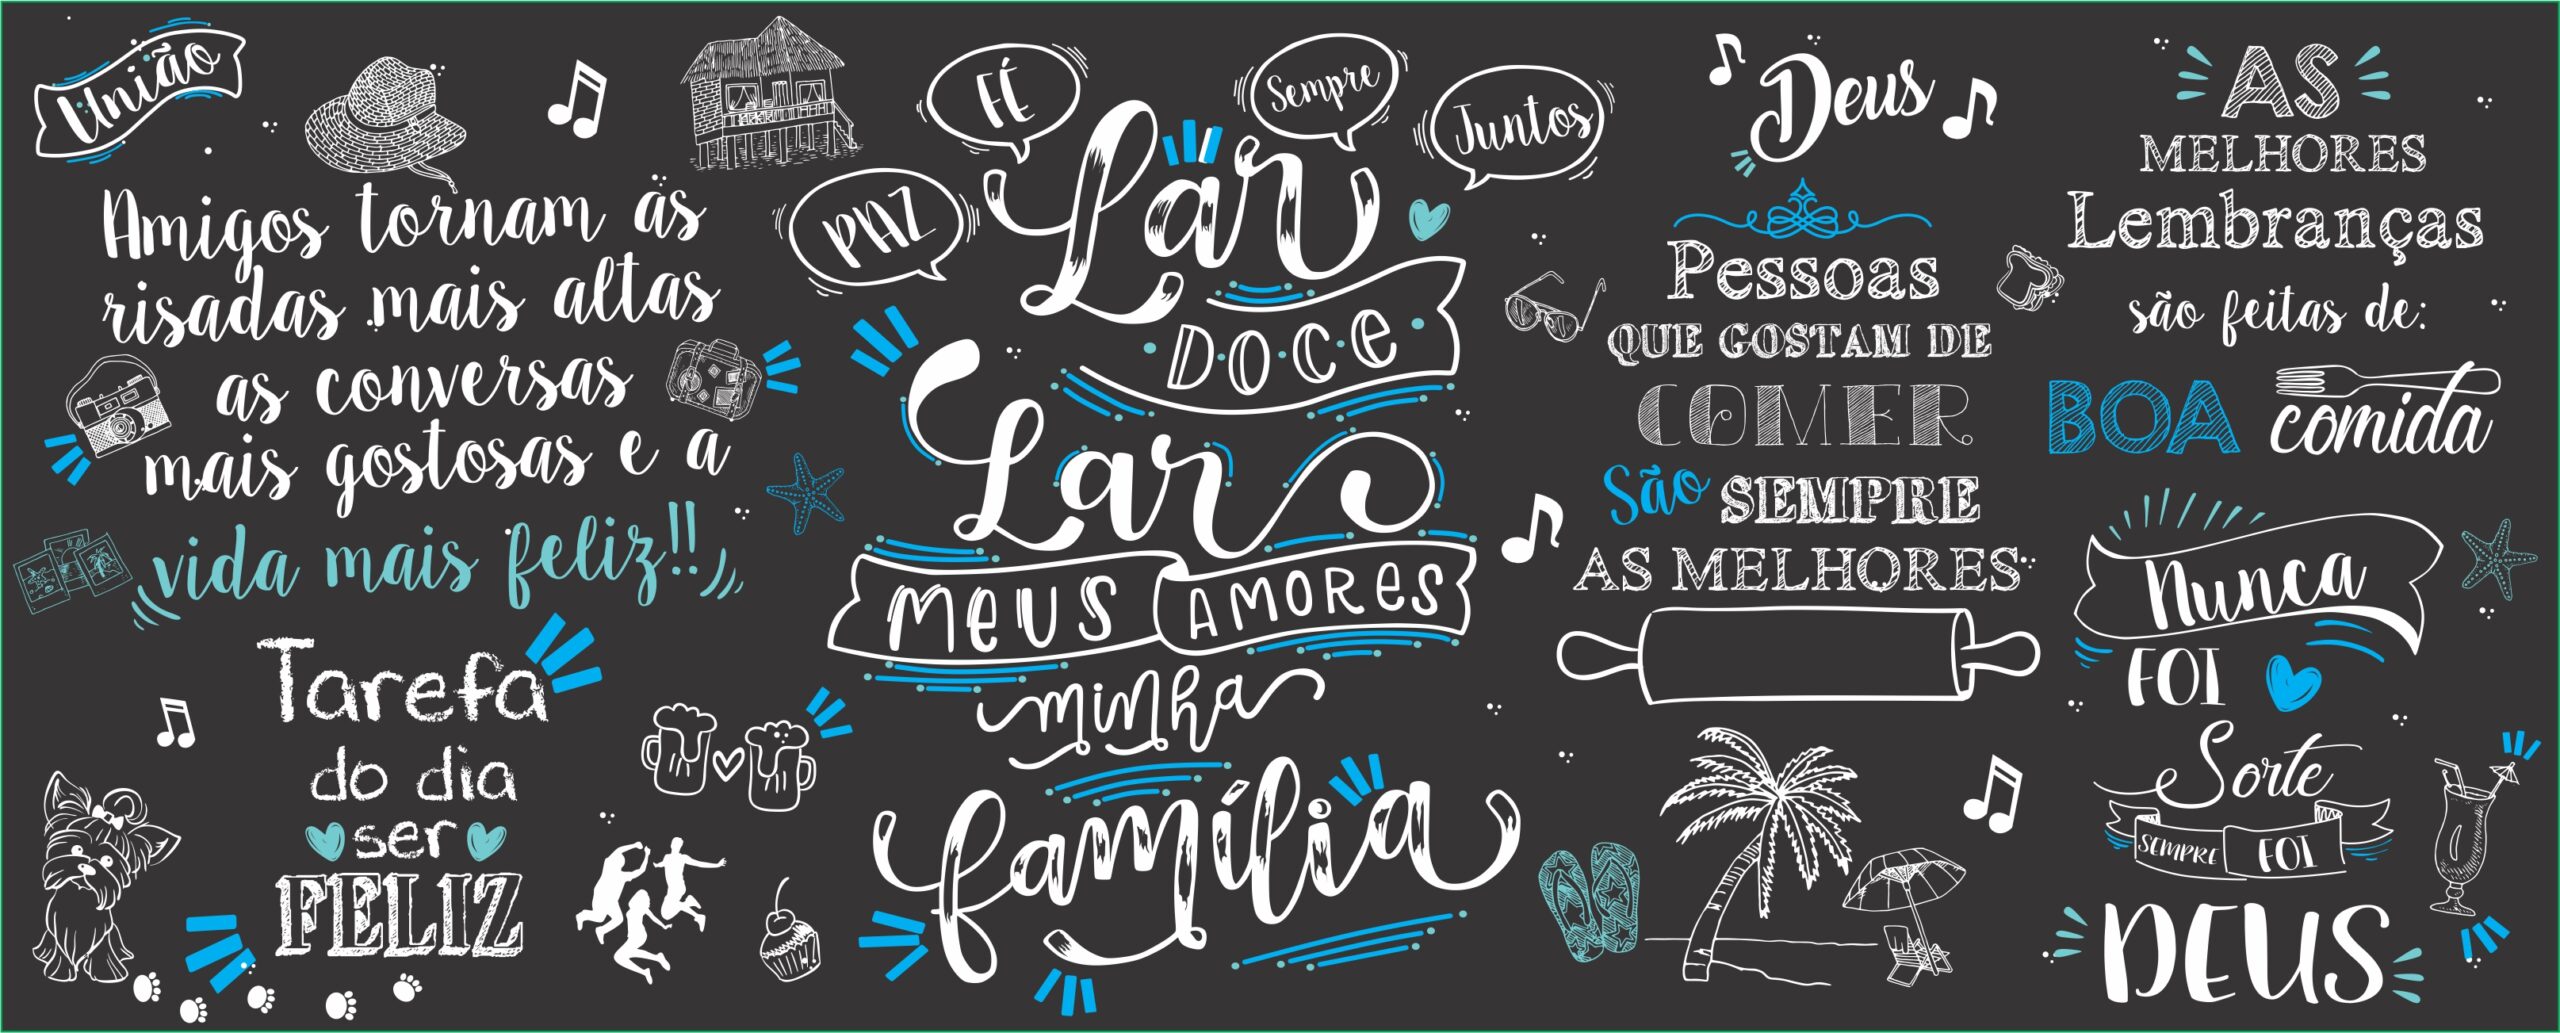 União
Amigos tornam as
risadas mais altas
as conversas
mais gostosas e a
vida mais feliz!!
Tarefa
do dia
ser
FELIZ
FÉ
PAZ
Sempre
Juntos
Lar
DOCE
Lar
MEUS AMORES
minha
família
Deus
Pessoas
QUE GOSTAM DE
COMER
São SEMPRE
AS MELHORES
AS
MELHORES
Lembranças
são feitas de:
BOA comida
Nunca
FOI
Sorte
SEMPRE FOI
DEUS